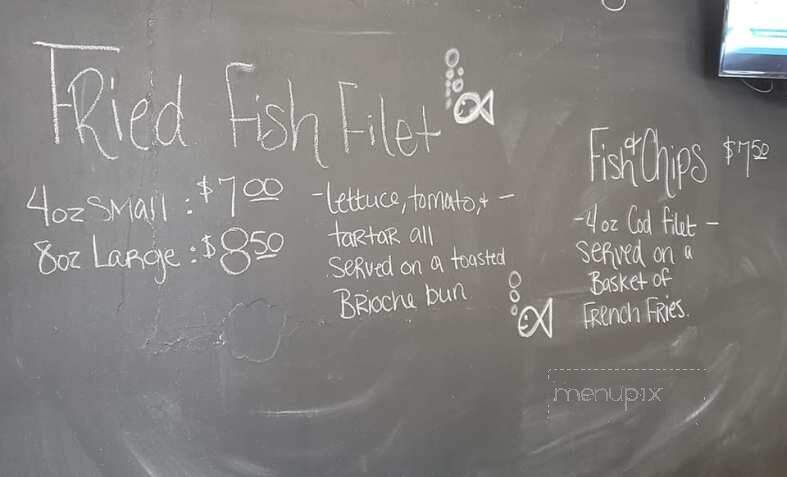 FRied Fish Filet
4oz Small : $7.00
8oz Large : $8.50
- lettuce, tomato, & -
tartar all
served on a toasted
Brioche bun
Fish & Chips $7.50
- 4 oz Cod filet -
served on a
Basket of
French Fries.
menupix